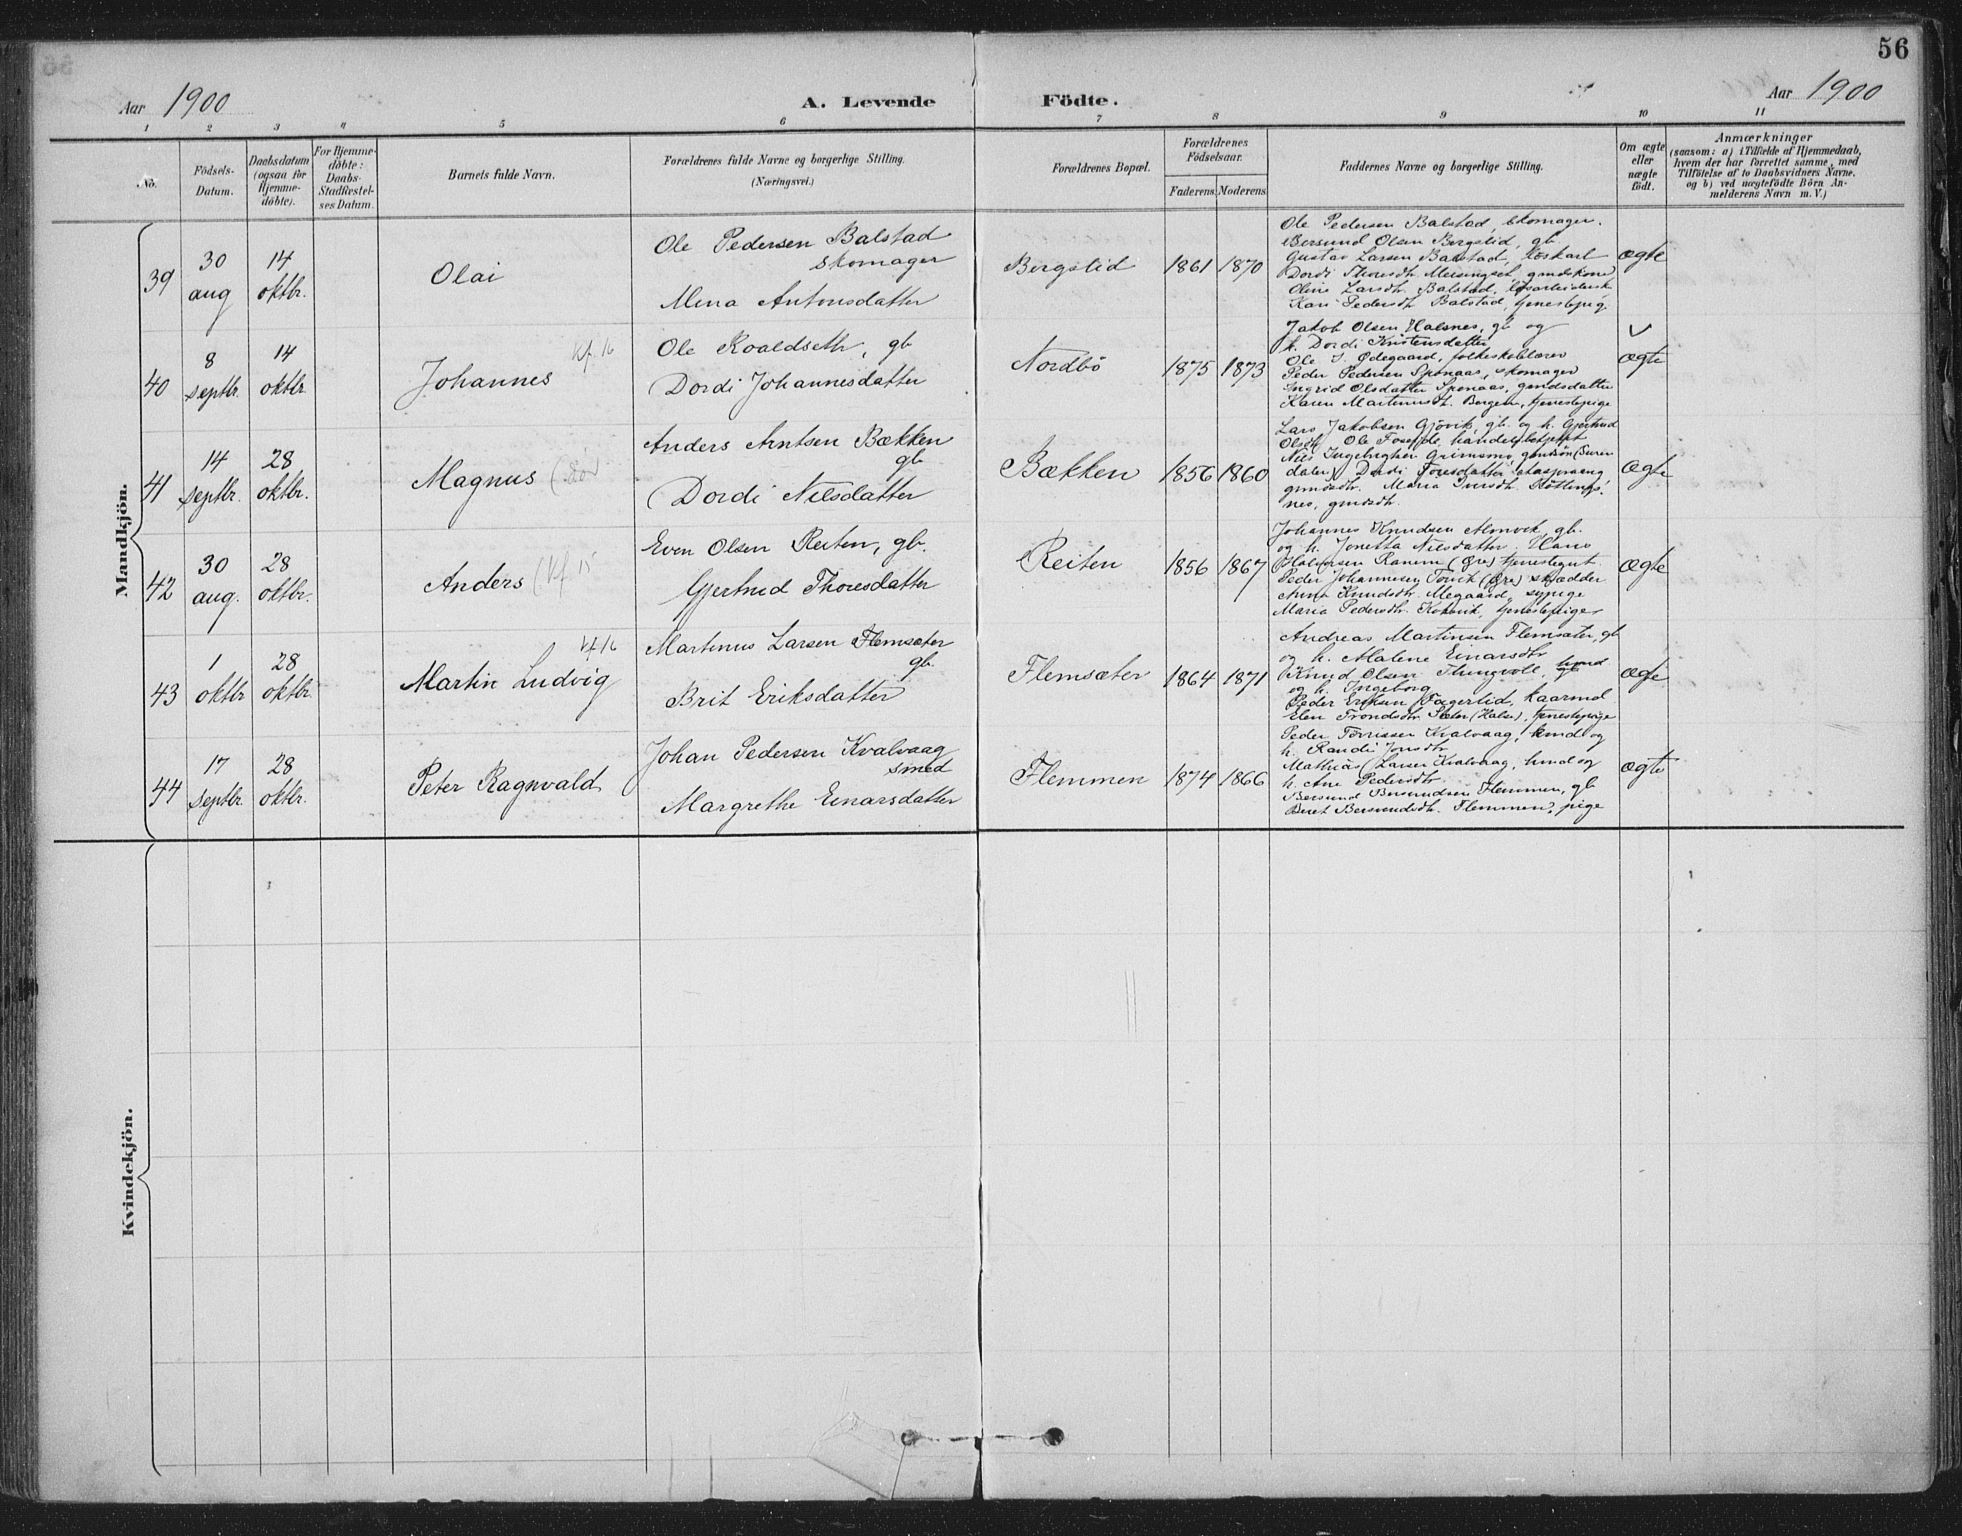 56
Aar 1900
A. Levende Födte.
Aar 1900
1 2 3 4 5 6 7 8 9 10 11
No.
Födsels-Datum.
Daabsdatum (ogsaa for Hjemmedöbte).
For Hjemmedöbte: Daabs-Stadfæstelses Datum.
Barnets fulde Navn.
Forældrenes fulde Navne og borgerlige Stilling.
(Næringsvei.)
Forældrenes Bopæl.
Forældrenes Födselsaar.
Faderens. Moderens.
Faddernes Navne og borgerlige Stilling.
Om ægte eller uægte födt.
Anmærkninger
(saasom: a) i Tilfælde af Hjemmedaab,
hvem der har forrettet samme, med
Tilföielse af to Daabsvidners Navne,
og b) ved uægtefödte Börn An-
melderens Navn m. V.)
Mandkjön.
39
30 aug
14 oktbr.
Olai
Ole Pedersen Balstad
skomager
Mena Antonsdatter
Bergslid
1861 1870
Ole Pedersen Balstad, skomager.
Bersund Olsen Bergslid, gb
Gustav Larsen Balstad, løskarl
Dordi Thoresdtr. Meisingset, gmdskone
Oline Larsdtr. Balstad, løsarbeidersk
Kari Pedersdtr. Balstad, tjenestepig
ægte
40
8 septbr.
14 oktbr.
Johannes
Kf. 16
Ole Roaldseth, gb
Dordi Johannesdatter
Nordbö
1875 1873
Jakob Olsen Halsnes, gb og
h. Dordi Kristensdatter
Ole Ødegaard, folkeskolelærer
Peder Pedersen Sponaas, skomager
Ingrid Olsdatter Sponaas, gmdsdatter
Karen Martinusdtr. Bergem, tjenestepige
ægte
41
14 septbr.
28 oktbr.
Magnus (död
Anders Arntsen Bækken
gb
Dordi Nilsdatter
Bækken
1856 1860
Lars Jakobsen Gjövik, gb. og h. Gjertrud
Olsdtr. Ole Foseide, handelsbetjent
Nils Grimsmo, gmdsön (Suren
dalen) Dordi Toresdatter
gmdsdtr. Maria Iversdtr.
nes, gmdsdtr.
ægte
42
30 aug.
28 oktbr.
Anders (Kf 15
Even Olsen Reiten, gb.
Gjertrud Thoresdatter
Reiten
1856 1867
Johannes Knudsen Almvik, gb.
og h. Jonetta Nilsdatter. Hans
Halvorsen Ranem (Øre) tjenestegut
Peder Johannesen (Øre) skrædder
Anna Knudsdtr. Megaard, sypige
Maria Pedersdtr. Koksvik, tjenestepige
ægte
43
1 oktbr
28 oktbr.
Martin Ludvig
Kf 16
Martinus Larsen Flemsæter
gb.
Brit Eriksdatter
Flemsæter
1864 1871
Andreas Martinsen Flemsæter, gb
og h. Malene Einarsdtr
Knud Olsen Tlungvold, hmd
og h. Ingeborg
Peder Eriksen Fagerlid, kaarmd
Elen Trondsdtr. Sæter (Halse), tjenestepige
ægte
44
17 septbr.
28 oktbr.
Peter Ragnvald
Johan Pedersen Kvalvaag
smed
Margrethe Einarsdatter
Flemmen
1874 1866
Peder Tørrissen Kvalvaag, hmd og
h. Randi Jonsdtr
Mathias Larsen Kvalvaag, hmd og
h. Ane Pedersdtr.
Bersund Bersundsen Flemmen, gb
Beret Bersundsdtr. Flemmen, pige
ægte
Kvindekjön.